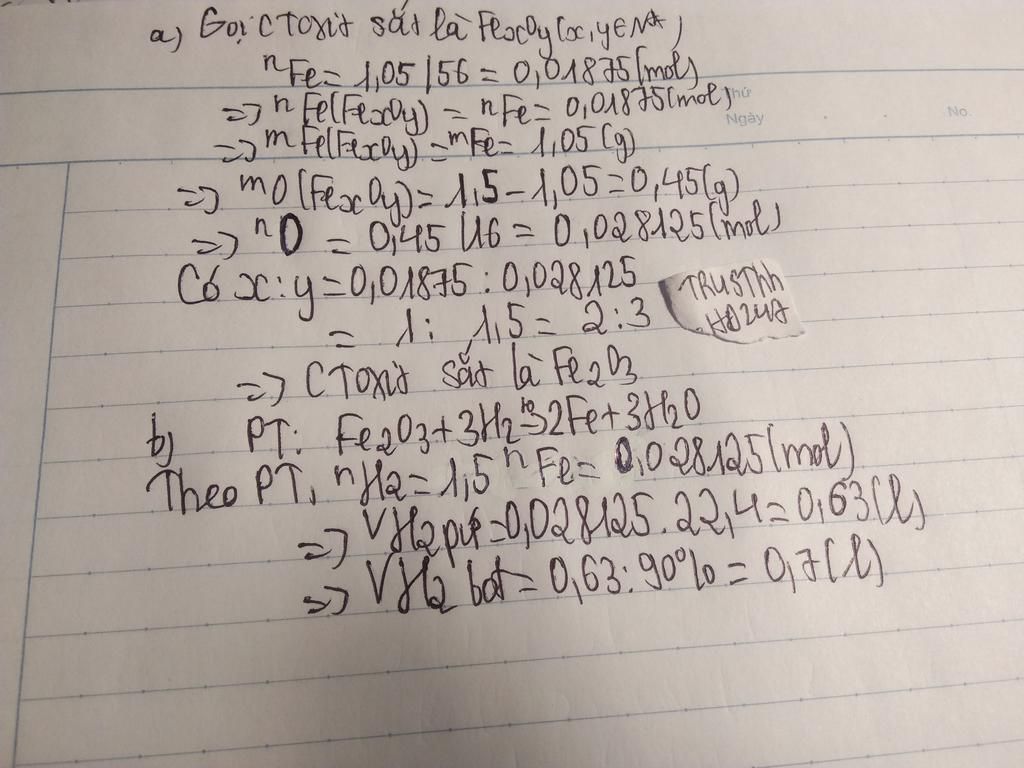 a) Gọi CT oxit sắt là FexOy (x,y∈N*)
nFe = 1,05/56 = 0,01875(mol)
=> nFe(FexOy) = nFe = 0,01875(mol)
Thứ
Ngày
No.
=> mFe(FexOy) = mFe = 1,05(g)
=> mO(FexOy) = 1,5 - 1,05 = 0,45(g)
=> nO = 0,45/16 = 0,028125(mol)
Có x:y = 0,01875 : 0,028125
= 1 : 1,5 = 2:3
TRUSTHH
HD247
=> CT oxit sắt là Fe2O3
b) PT: Fe2O3 + 3H2 → 2Fe + 3H2O
Theo PT, nH2 = 1,5 nFe = 0,028125(mol)
=> VH2 pứ = 0,028125.22,4 = 0,63(l)
=> VH2 bđ = 0,63:90% = 0,7(l)